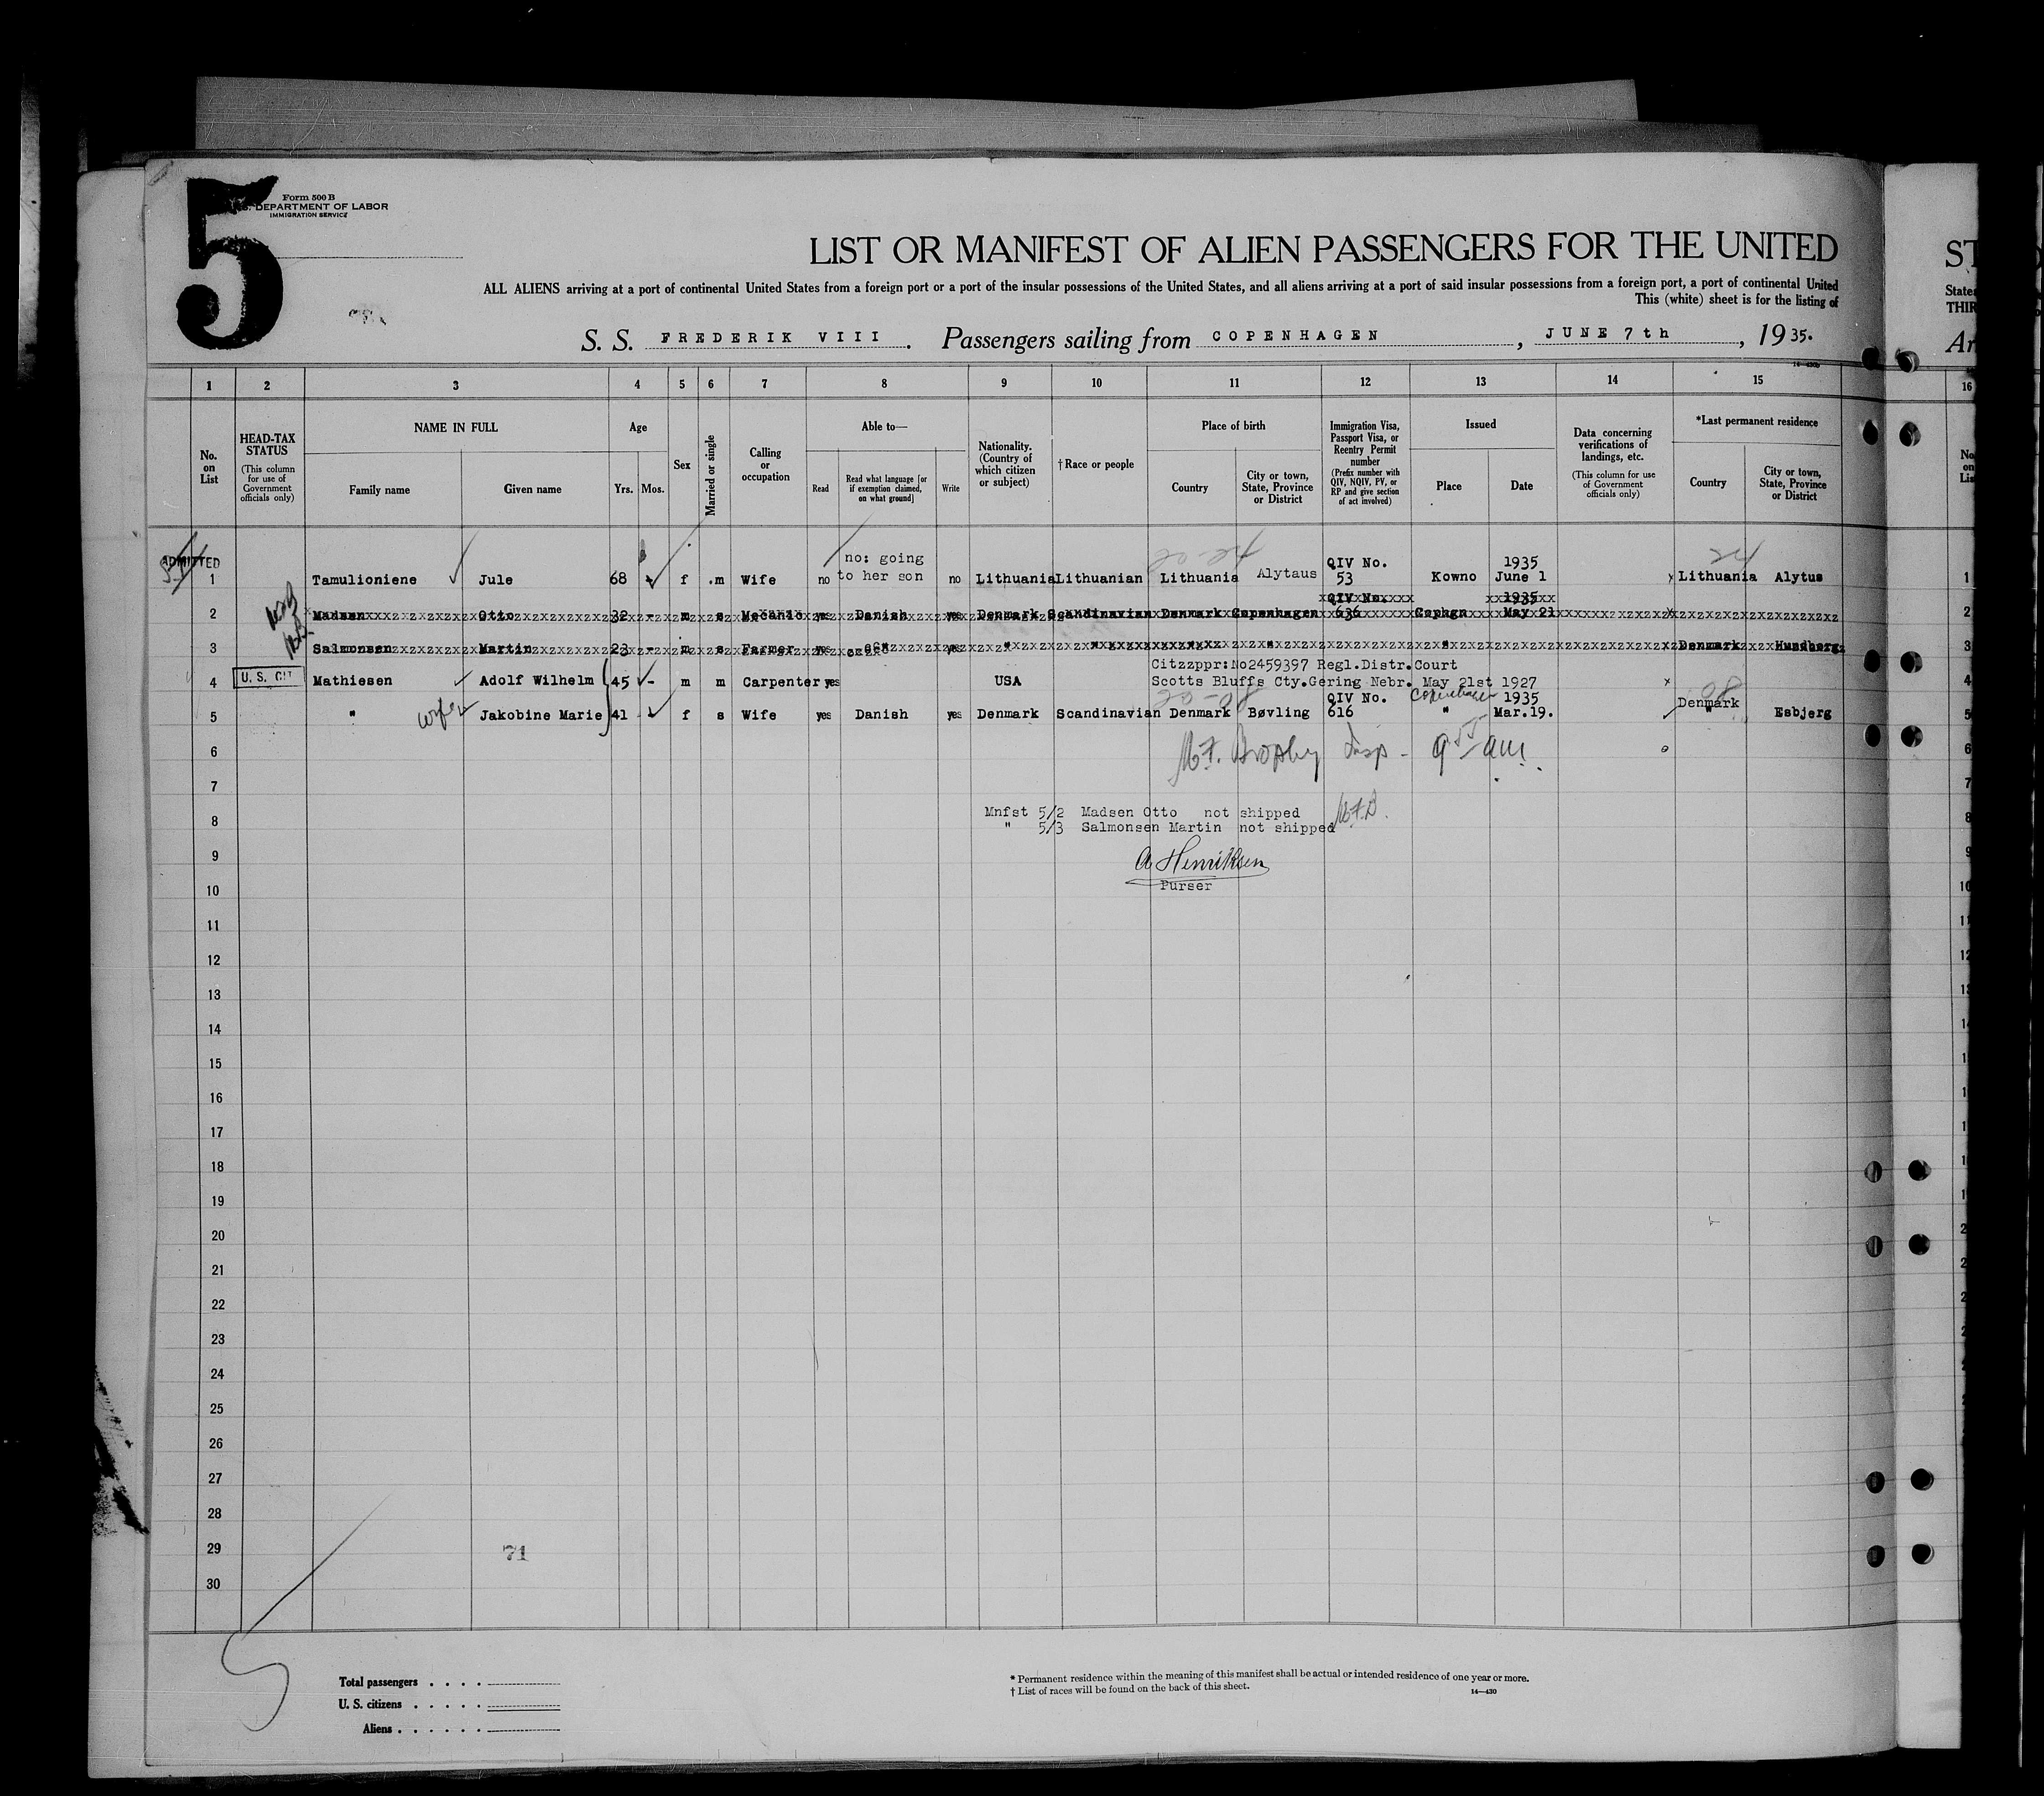 5
Form 500 B
U.S. DEPARTMENT OF LABOR
IMMIGRATION SERVICE
LIST OR MANIFEST OF ALIEN PASSENGERS FOR THE UNITED
ALL ALIENS arriving at a port of continental United States from a foreign port or a port of the insular possessions of the United States, and all aliens arriving at a port of said insular possessions from a foreign port, a port of continental United
This (white) sheet is for the listing of
S. S. FREDERIK VIII. Passengers sailing from COPENHAGEN, JUNE 7th, 1935.
ST
States
THIR
Ar
1 2 3 4 5 6 7 8 9 10 11 12 13 14 15 16
No. on List
HEAD-TAX STATUS (This column for use of Government officials only)
NAME IN FULL
Family name Given name
Age
Yrs. Mos.
Sex
Married or single
Calling or occupation
Able to—
Read Read what language [or if exemption claimed, on what ground] Write
Nationality. (Country of which citizen or subject)
†Race or people
Place of birth
Country City or town, State, Province or District
Immigration Visa, Passport Visa, or Reentry Permit number (Prefix number with QIV, NQIV, PV, or RP and give section of act involved)
Issued
Place Date
Data concerning verifications of landings, etc. (This column for use of Government officials only)
*Last permanent residence
Country City or town, State, Province or District
ADMITTED
1 Tamulioniene Jule 68 f m Wife no no: going to her son no Lithuania Lithuanian Lithuania Alytaus QIV No. 53 Kowno 1935 June 1 Lithuania Alytus
2 Madsen Otto 32 - m s Mechanic yes Danish yes Denmark Scandinavian Denmark Copenhagen QIV No. 636 Cophgn 1935 May 21
3 Salmonsen Martin 23 - m s Farmer yes " yes " " " Denmark Hundborg
U. S. CIT
4 Mathiesen Adolf Wilhelm 45 - m m Carpenter yes USA Citzzppr:No2459397 Regl.Distr.Court
Scotts Bluffs Cty.Gering Nebr. May 21st 1927
5 " wife Jakobine Marie 41 f s Wife yes Danish yes Denmark Scandinavian Denmark Bøvling QIV No. 616 Copenhagen " 1935 Mar.19. Denmark " Esbjerg
6
M.F. Brophy Insp - 9 55 am.
7
Mnfst 5/2 Madsen Otto not shipped
8
" 5/3 Salmonsen Martin not shipped M.F.B.
9
A Henriksen
10
Purser
11
12
13
14
15
16
17
18
19
20
21
22
23
24
25
26
27
28
29
71
30
5
Total passengers
U. S. citizens
Aliens
* Permanent residence within the meaning of this manifest shall be actual or intended residence of one year or more.
† List of races will be found on the back of this sheet.
14—430